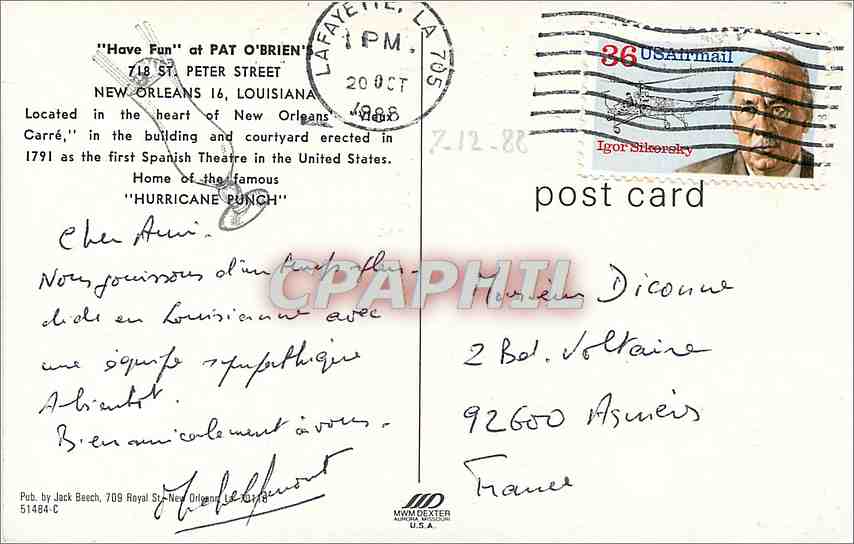 "Have Fun" at PAT O'BRIEN'S
718 ST. PETER STREET
NEW ORLEANS 16, LOUISIANA
Located in the heart of New Orleans' "Vieux
Carré," in the building and courtyard erected in
1791 as the first Spanish Theatre in the United States.
Home of the famous
"HURRICANE PUNCH"
Cher Ami.
Nous jouissons d'un temps splen-
dide en Louisianne avec
une équipe sympathique
A bientôt.
Bien amicalement à vous.
Pub. by Jack Beech, 709 Royal St., New Orleans, La 70116
51484-C
LAFAYETTE, LA 705
1 PM
20 OCT
1988
7-12-88
36 USAirmail
Igor Sikorsky
post card
CPAPHIL
Monsieur Diconne
2 Bd. Voltaire
92600 Asnières
France
MWM DEXTER
AURORA, MISSOURI
U.S.A.